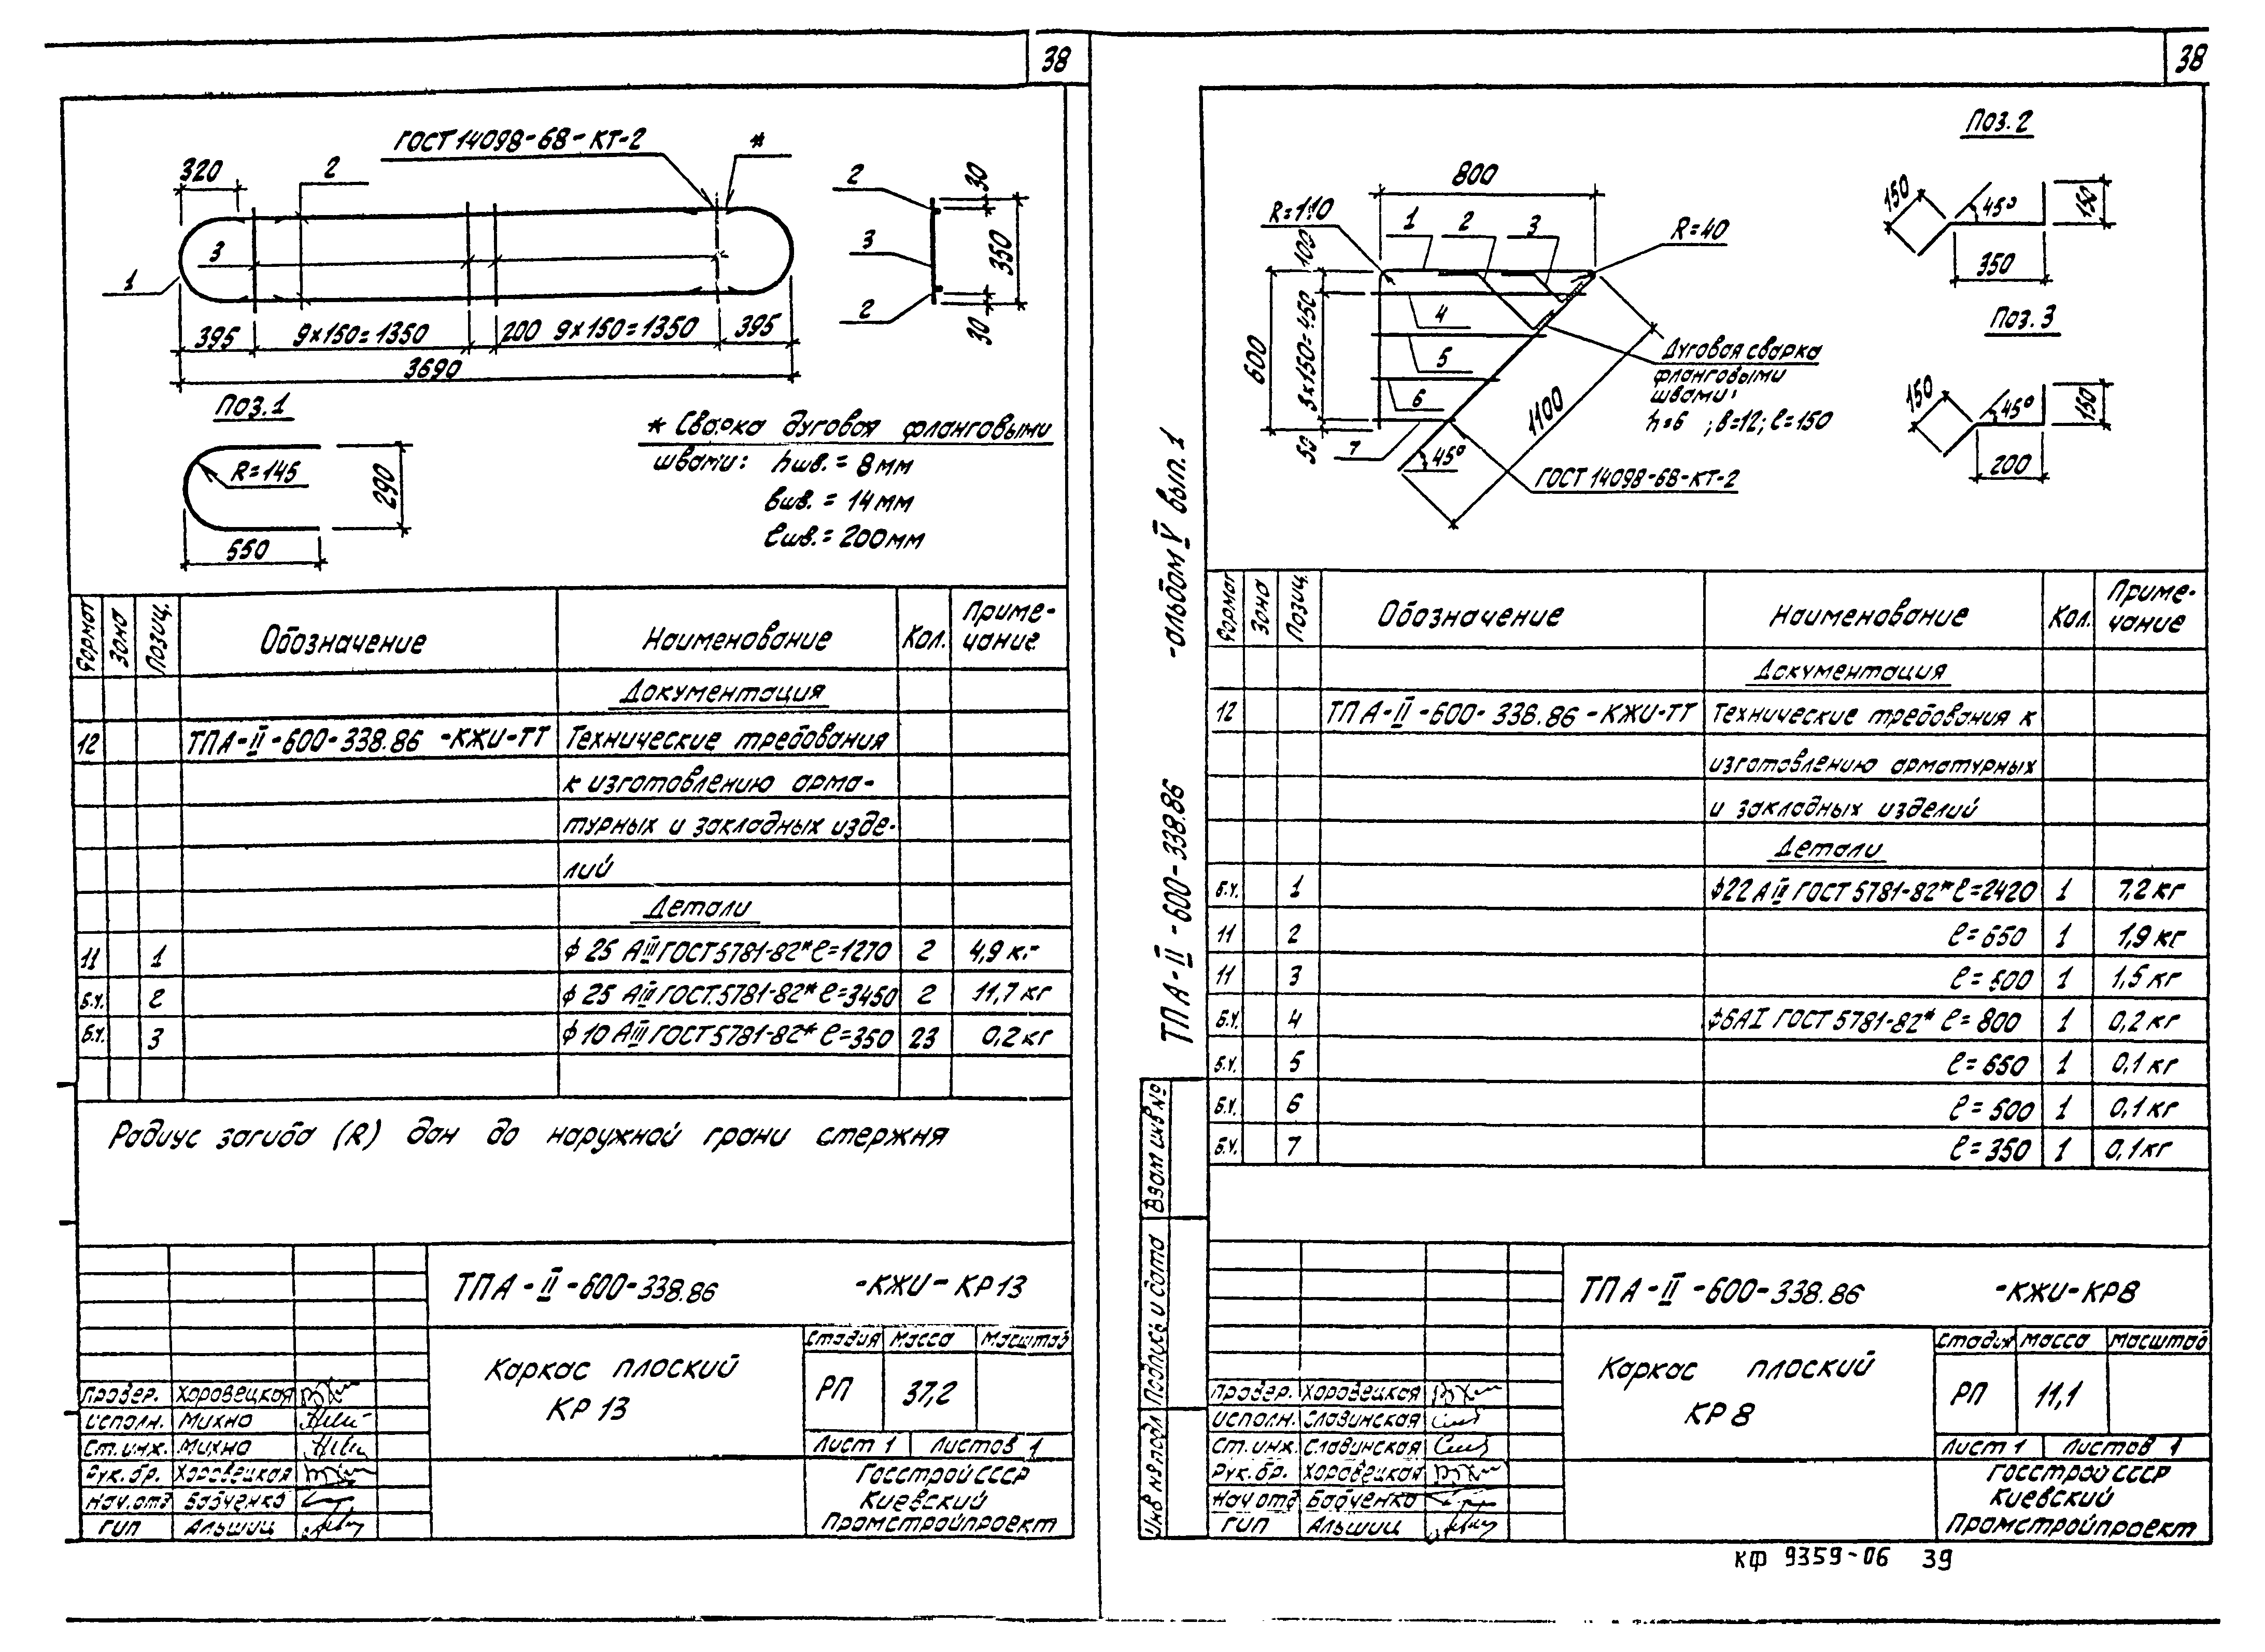 38
ГОСТ 14098-68-КТ-2
*
320
2
3
1
395
9×150=1350
200
9×150=1350
395
3690
2
3
2
30
350
30
Поз.1
R=145
290
550
* Сварка дуговая фланговыми
швами: hшв. = 8мм
bшв. = 14мм
ℓшв. = 200мм
Формат
Зона
Позиц.
Обозначение
Наименование
Кол.
Приме-
чание
Документация
12 ТП А-II-600-338.86 -КЖИ-ТТ Технические требования
к изготовлению арма-
турных и закладных изде-
лий
Детали
11 1 ф 25 АIII ГОСТ 5781-82* ℓ=1270 2 4,9 кг
Б.Ч. 2 ф 25 АIII ГОСТ.5781-82* ℓ=3450 2 11,7 кг
Б.Ч. 3 ф 10 АIII ГОСТ 5781-82* ℓ=350 23 0,2 кг
Радиус загиба (R) дан до наружной грани стержня
ТП А-II-600-338.86 -КЖИ-КР13
Каркас плоский
КР 13
Стадия Масса Масштаб
РП 37,2
Лист 1 Листов 1
Госстрой СССР
Киевский
Промстройпроект
Провер. Хоровецкая
Исполн. Михно
Ст.инж. Михно
Рук.бр. Хоровецкая
Нач.отд Бабченко
ГИП Альшиц
38
Поз.2
150
45°
150
350
Поз.3
150
45°
150
200
800
R=110
1
2
3
R=40
100
600
3×150=450
50
4
5
6
7
45°
1100
Дуговая сварка
фланговыми
швами:
h=6 ; b=12; ℓ=150
ГОСТ 14098-68-КТ-2
ТП А-II-600-338.86 -альбом V вып. 1
Формат
Зона
Позиц.
Обозначение
Наименование
Кол.
Приме-
чание
Документация
12 ТП А-II-600-338.86-КЖИ-ТТ Технические требования к
изготовлению арматурных
и закладных изделий
Детали
Б.Ч. 1 ф22 АIII ГОСТ 5781-82* ℓ=2420 1 7,2 кг
11 2 ℓ=650 1 1,9 кг
11 3 ℓ=500 1 1,5 кг
Б.Ч. 4 ф6АI ГОСТ 5781-82* ℓ=800 1 0,2 кг
Б.Ч. 5 ℓ=650 1 0,1 кг
Б.Ч. 6 ℓ=500 1 0,1 кг
Б.Ч. 7 ℓ=350 1 0,1кг
Взам инв №
Подпись и дата
Инв № подл
ТП А-II-600-338.86 -КЖИ-КР8
Каркас плоский
КР 8
Стадия Масса Масштаб
РП 11,1
Лист 1 Листов 1
Госстрой СССР
Киевский
Промстройпроект
Провер. Хоровецкая
Исполн. Славинская
Ст.инж. Славинская
Рук.бр. Хоровецкая
Нач отд Бабченко
ГИП Альшиц
КФ 9359-06 39